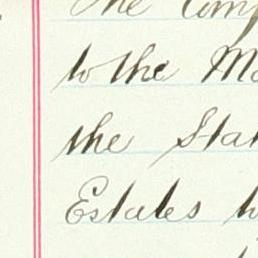 The Comp
to the Ma
the Stat
Estates